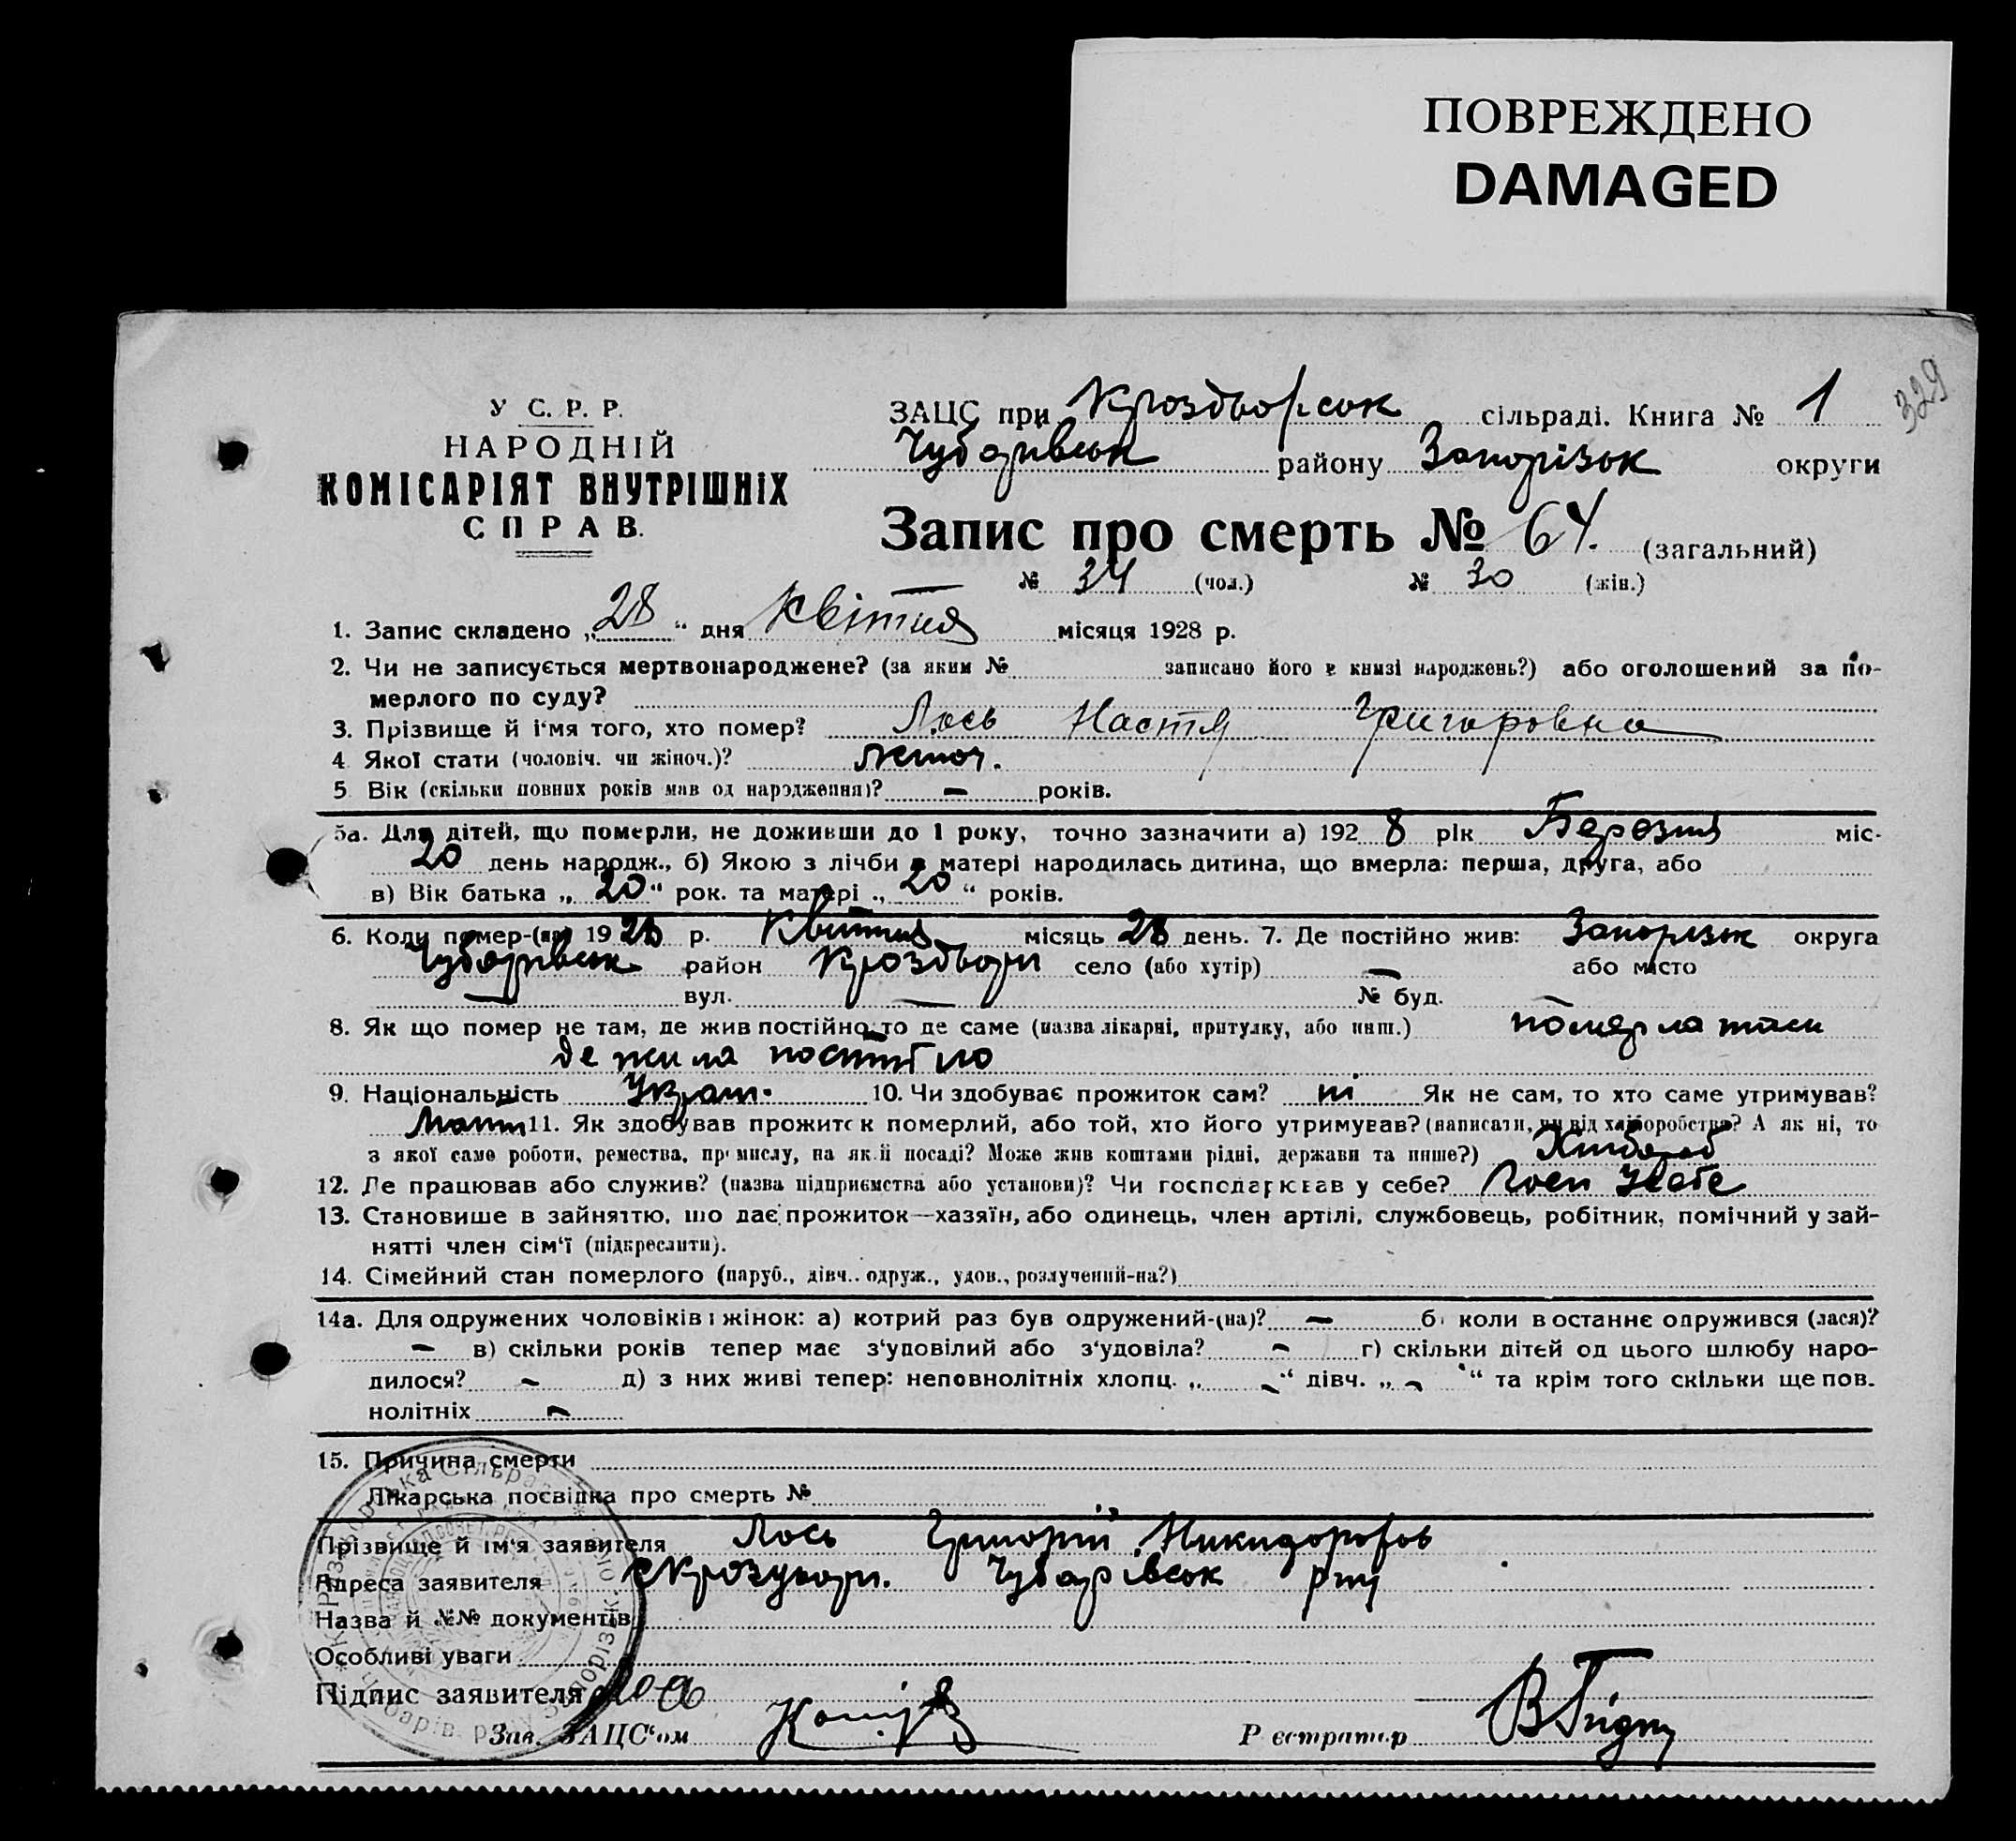 ПОВРЕЖДЕНО
DAMAGED
329
У С. Р. Р.
НАРОДНІЙ
КОМІСАРІЯТ ВНУТРІШНІХ
СПРАВ.
ЗАЦС при сільраді. Книга № 1
Чубарівськ району Запорізьк округи
Запис про смерть № 64. (загальний)
№ 34 (чол.) № 30 (жін.)
1. Запис складено „28“ дня Квітня місяця 1928 р.
2. Чи не записується мертвонароджене? (за яким № записано його в книзі народжень?) або оголошений за по-
мерлого по суду?
3. Прізвище й і'мя того, хто помер? Лось Настя Григоровна
4 Якої стати (чоловіч. чи жіноч.)?
5 Вік (скільки повних років мав од народження)? — років.
5а. Для дітей, що померли, не доживши до 1 року, точно зазначити а) 1928 рік Березня міс-
20 день народж., б) Якою з лічби в матері народилась дитина, що вмерла: перша, друга, або
в) Вік батька „20“ рок. та матері „20“ років.
6. Коли помер-(ла) 1928 р. Квітня місяць 28 день. 7. Де постійно жив: Запорізьк округа
Чубарівськ район село (або хутір) — або місто
— вул. — № буд. —
8. Як що помер не там, де жив постійно, то де саме (назва лікарні, притулку, або инш.) померла там
де жила постійно
9. Національність Украін. 10. Чи здобуває прожиток сам? ні Як не сам, то хто саме утримував?
11. Як здобував прожиток померлий, або той, хто його утримував? (написати, чи від хліборобства? А як ні, то
з якої саме роботи, ремества, промислу, на якій посаді? Може жив коштами рідні, держави та инше?) Хлібороб
12. Де працював або служив? (назва підприємства або установи)? Чи господарював у себе?
13. Становище в зайняттю, що дає прожиток—хазяїн, або одинець, член артілі, службовець, робітник, помічний у зай-
нятті член сім'ї (підкреслити).
14. Сімейний стан померлого (паруб., дівч.. одруж., удов., розлучений-на?)
14а. Для одружених чоловіків і жінок: а) котрий раз був одружений-(на)? — б) коли востаннє одружився (лася)?
— в) скільки років тепер має з'уповілий або з'удовіла? — г) скільки дітей од цього шлюбу наро-
дилося? — д) з них живі тепер: неповнолітніх хлопц. „—“ дівч. „—“ та крім того скільки ще пов.
нолітніх —
15. Причина смерти
Лікарська посвідка про смерть №
Прізвище й ім'я заявителя Лось Григорій
Адреса заявителя Чубарівськ р-ну
Назва й №№ документів
Особливі уваги
Підпис заявителя
Зав. ЗАЦС'ом Реєстратор